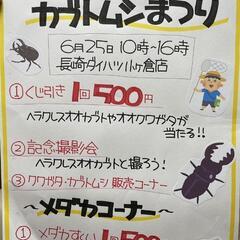 カブトムシまつり
6月25日 10時~16時
長崎ダイハツ小ヶ倉店
①くじ引き 1回500円
ヘラクレスオオカブトやオオクワガタが
当たる!!
②記念撮影会
ヘラクレスオオカブトと撮ろう!
③クワガタ・カブトムシ 販売コーナー
~メダカコーナー~
①メダカすくい 1回500円